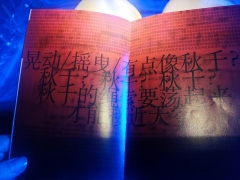 晃动/摇曳/有点像秋千?
秋千?秋千?秋千?
秋千的 要荡起来
才能 近大